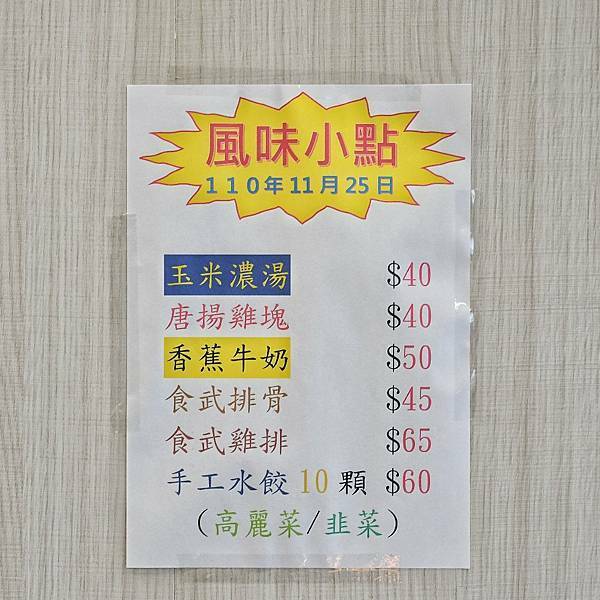 風味小點
110年11月25日
玉米濃湯 $40
唐揚雞塊 $40
香蕉牛奶 $50
食武排骨 $45
食武雞排 $65
手工水餃10顆 $60
(高麗菜/韭菜)